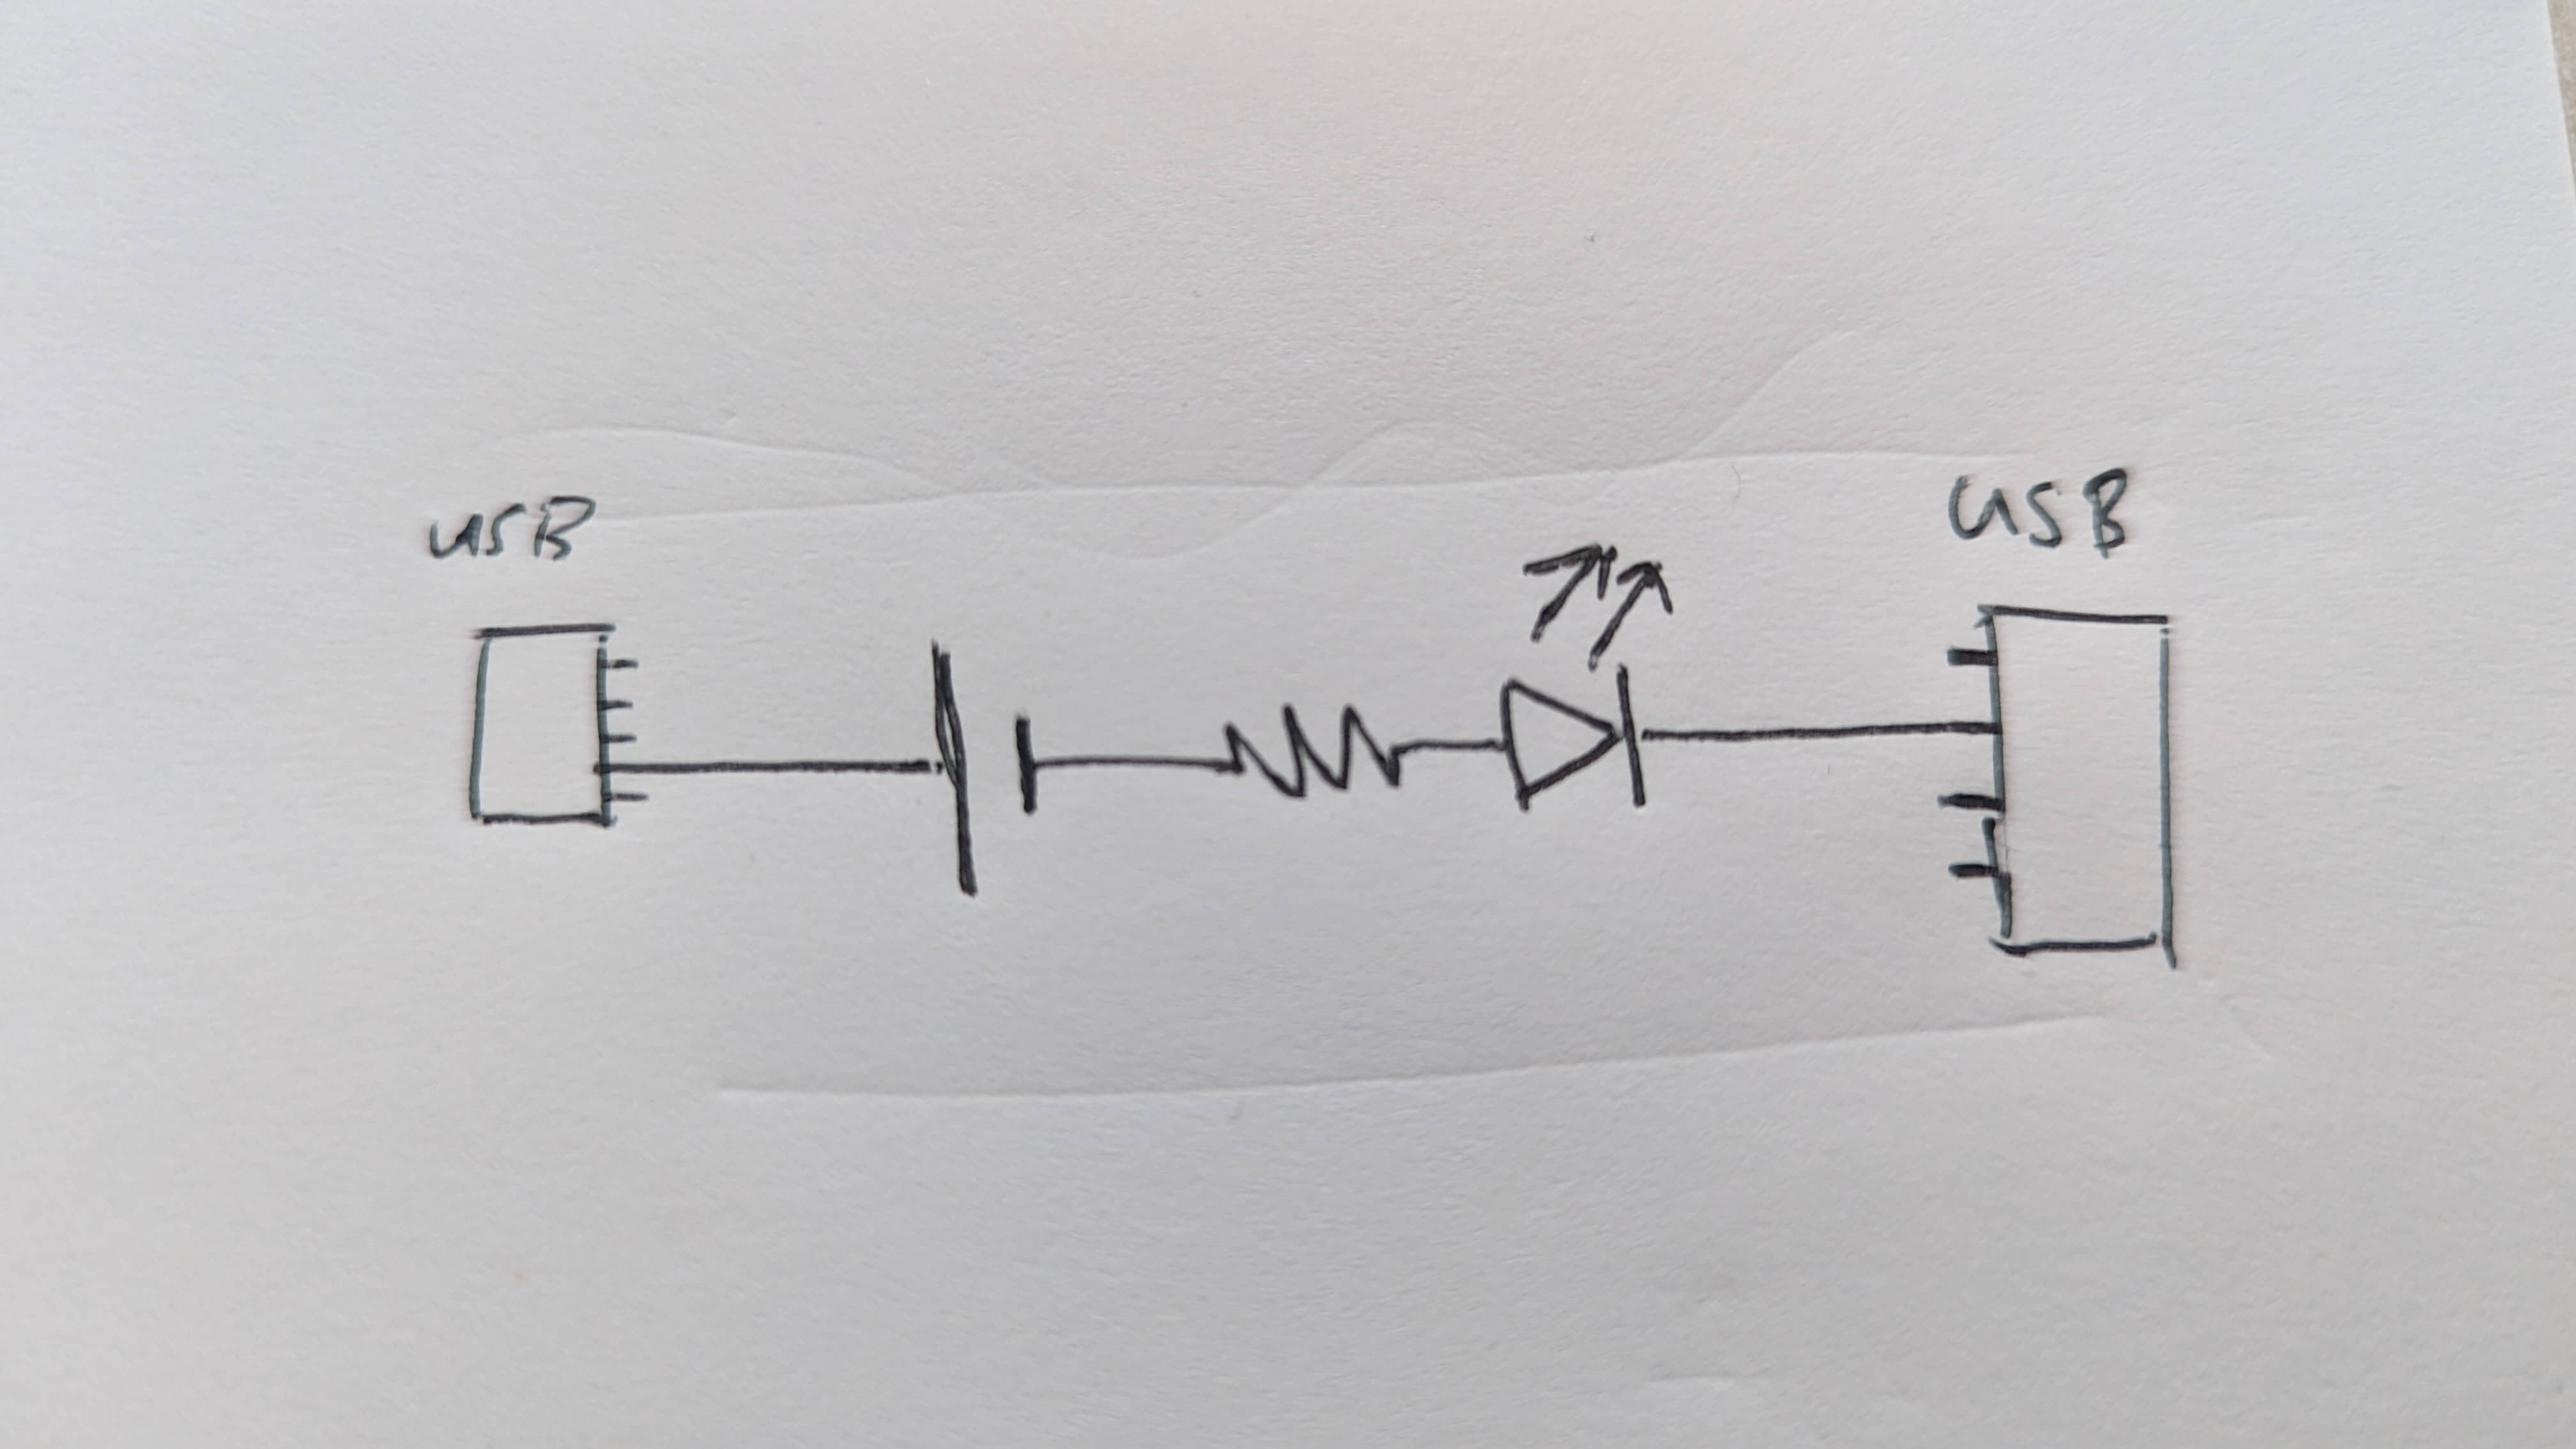 USB
USB